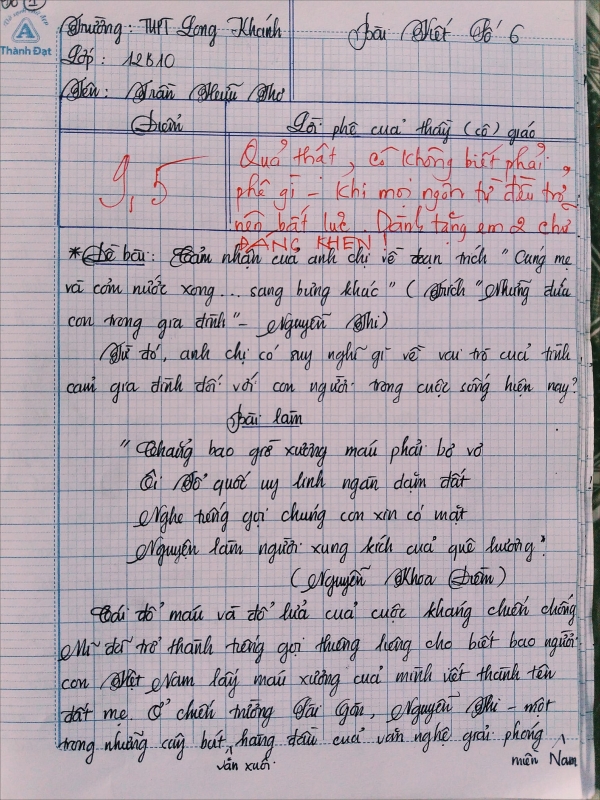 Thành Đạt
Trường: THPT Long Khánh
Bài Viết Số 6
Lớp: 12B10
Tên: Trần Hữu Thơ
Điểm
Lời phê của thầy (cô) giáo
9,5
Quả thật, cô không biết phải
phê gì - khi mọi ngôn từ đều trở
nên bất lực. Dành tặng em 2 chữ
ĐÁNG KHEN!
* Đề bài: Cảm nhận của anh chị về đoạn trích "Cúng mẹ
và cơm nước xong... sang bưng khác" (Trích "Những đứa
con trong gia đình" - Nguyễn Thi)
Từ đó, anh chị có suy nghĩ gì về vai trò của tình
cảm gia đình đối với con người trong cuộc sống hiện nay?
Bài làm
" Chẳng bao giờ xương máu phải bơ vơ
Ôi Tổ quốc uy linh ngàn dặm đất
Nghe tiếng gọi chúng con xin có mặt
Nguyện làm người xung kích của quê hương"
(Nguyễn Khoa Điềm)
Cái đổ máu và đổ lửa của cuộc kháng chiến chống
Mĩ đã trở thành tiếng gọi thiêng liêng cho biết bao người
con Việt Nam lấy máu xương của mình viết thành tên
đất mẹ. Ở chiến trường Sài Gòn, Nguyễn Thi - một
trong những cây bút hàng đầu của văn nghệ giải phóng
văn xuôi
miền Nam